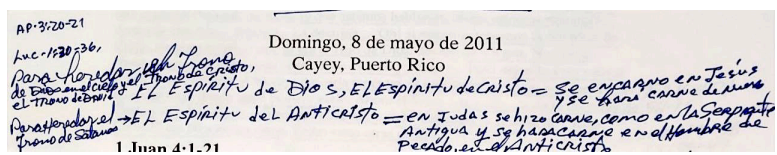 AP. 3:20-21
Luc. 1:30-36,
Domingo, 8 de mayo de 2011
Cayey, Puerto Rico
Para heredar el Trono
de Dios en el cielo y el Trono de Cristo,
el Trono de David = EL Espíritu de Dios, EL Espíritu de Cristo = se encarnó en Jesús
y se hará carne de nuevo
Para Heredar el → EL Espíritu del Anticristo = en Judas se hizo carne, como en la Serpiente
Trono de Satanás
Antigua y se hará carne en el Hombre de
Pecado, en el Anticristo
1 Juan 4:1-21